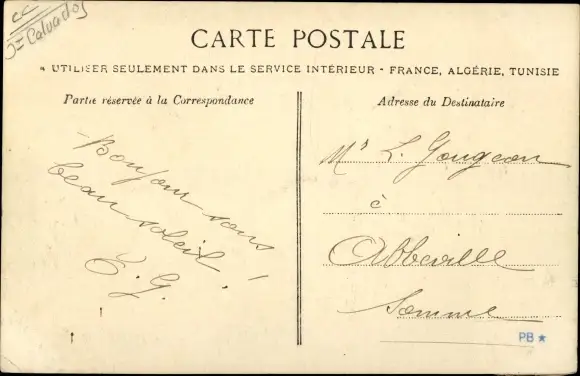 CC
Calvados
CARTE POSTALE
A UTILISER SEULEMENT DANS LE SERVICE INTÉRIEUR - FRANCE, ALGÉRIE, TUNISIE
Partie réservée à la Correspondance
Bonjour sous
beau soleil !
L. G.
Adresse du Destinataire
L. Gougeon
à
Abbeville
Somme
PB ★